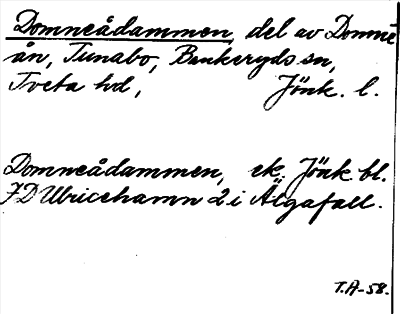 Domneådammen, del av Domne
ån, Tunabo, Bankeryds sn,
Tveta hd, Jönk. l.
Domneådammen, ek. Jönk. bl.
7D Ulricehamn 2 i Älgafall.
T.A-58.